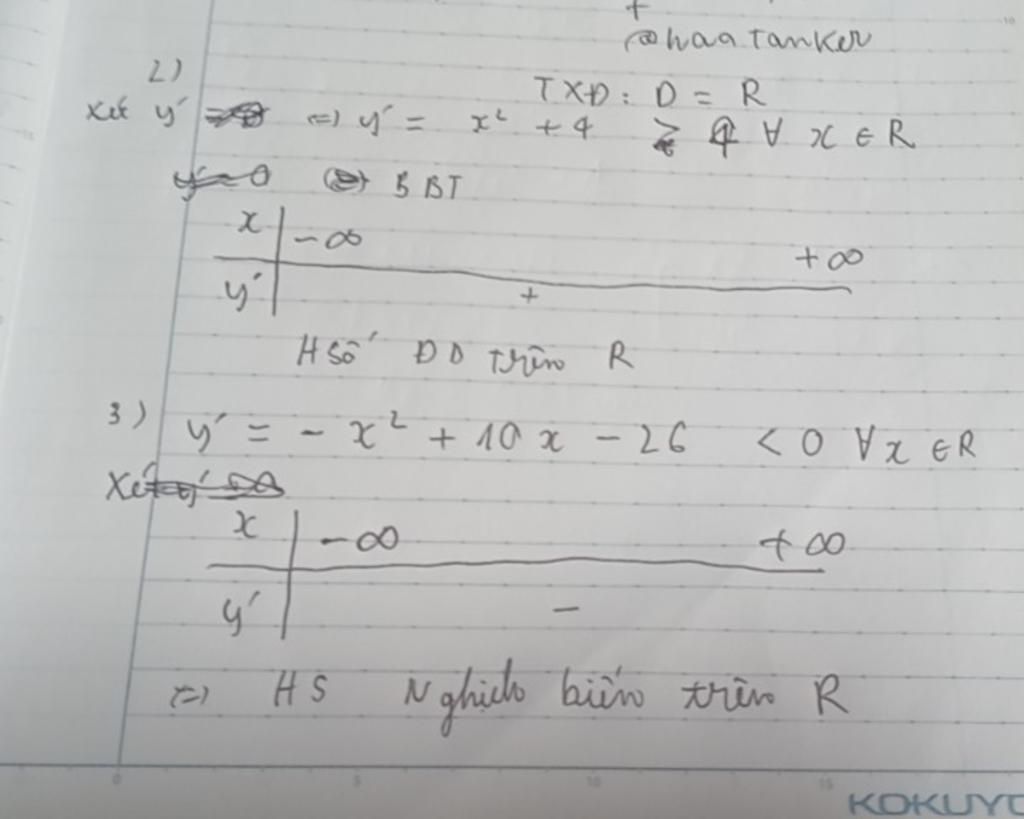 @haatanker
2)
TXĐ: D = R
Xét y' ⇔ y' = x² + 4 ≥ 4 ∀ x ∈ R
BBT
x -∞ +∞
y' +
H Số ĐB trên R
3)
y' = - x² + 10x - 26 < 0 ∀x ∈ R
Xét
x -∞ +∞
y' -
⇒ HS Nghịch biến trên R
0 5 10 15
KOKUYO